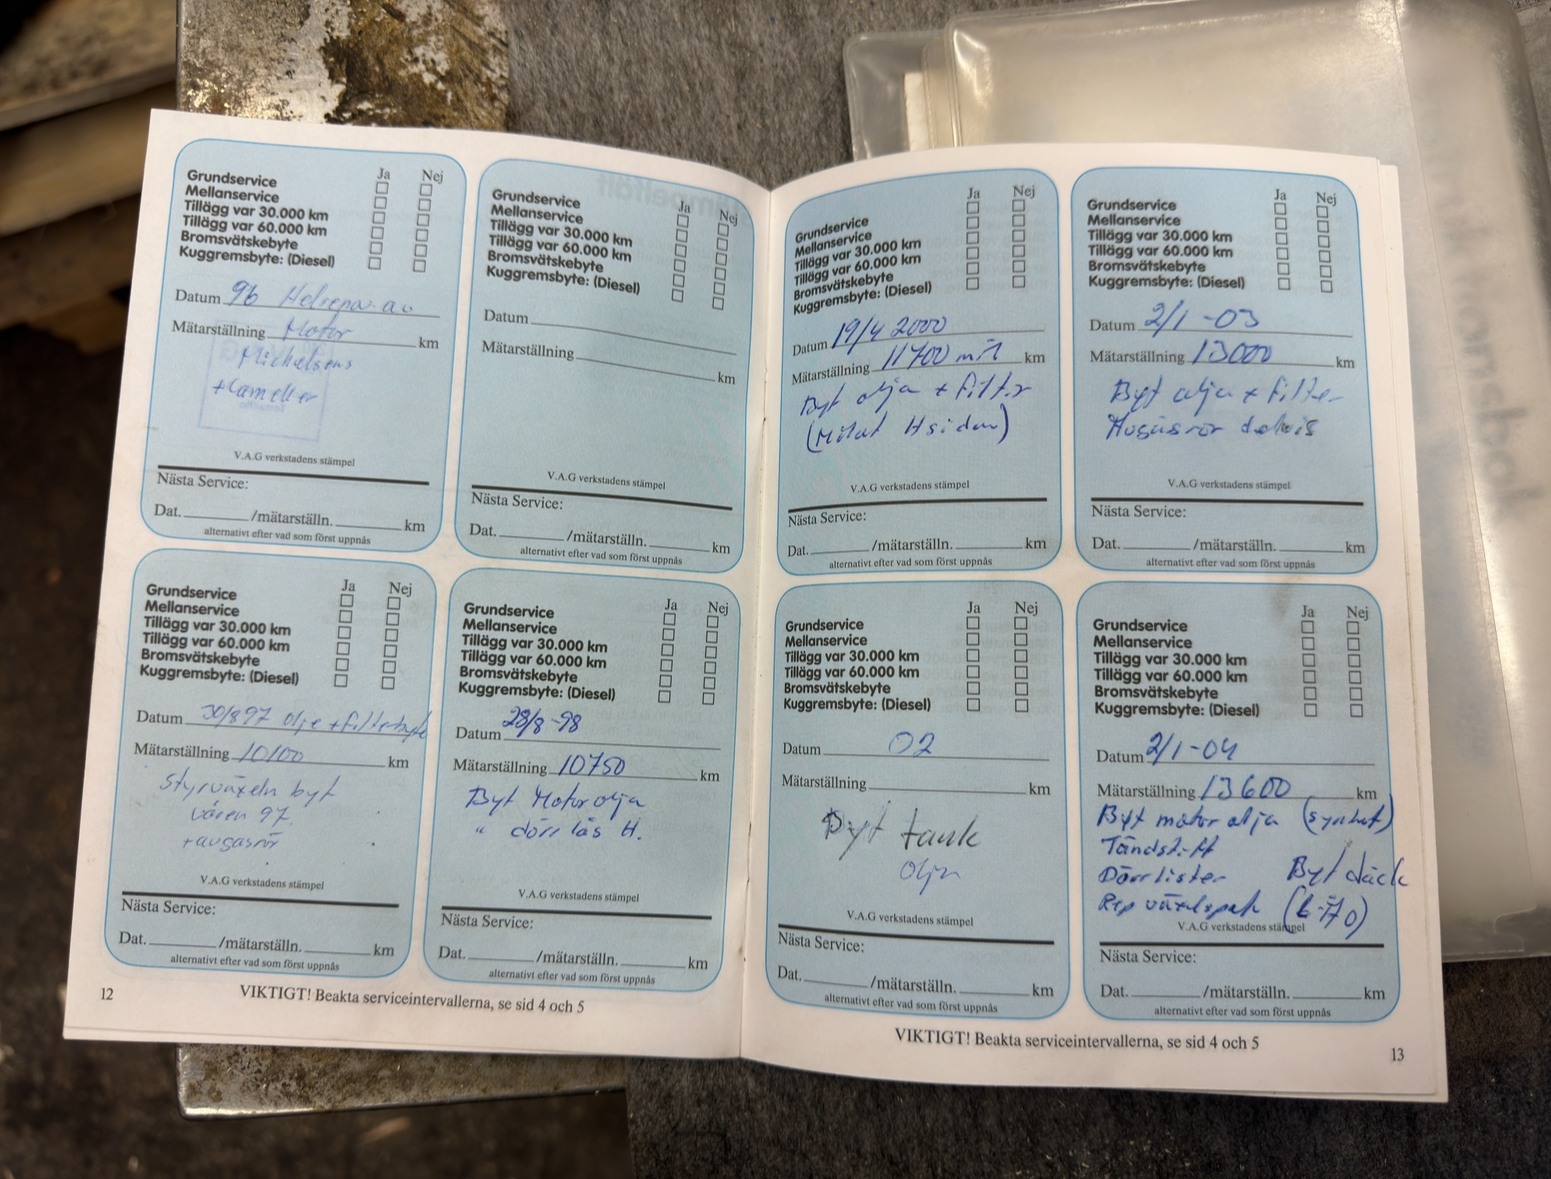 Ja Nej
Grundservice
Mellanservice
Tillägg var 30.000 km
Tillägg var 60.000 km
Bromsvätskebyte
Kuggremsbyte: (Diesel)
Datum 96 Helrenov. av
Mätarställning Motor km
Michelsons
+ Lameller
V.A.G verkstadens stämpel
Nästa Service:
Dat. /mätarställn. km
alternativt efter vad som först uppnås
Ja Nej
Grundservice
Mellanservice
Tillägg var 30.000 km
Tillägg var 60.000 km
Bromsvätskebyte
Kuggremsbyte: (Diesel)
Datum
Mätarställning km
V.A.G verkstadens stämpel
Nästa Service:
Dat. /mätarställn. km
alternativt efter vad som först uppnås
Ja Nej
Grundservice
Mellanservice
Tillägg var 30.000 km
Tillägg var 60.000 km
Bromsvätskebyte
Kuggremsbyte: (Diesel)
Datum 30/8 97 olje + filterbyte
Mätarställning 10100 km
Styrväxeln byt
våren 97.
+ avgasrör
V.A.G verkstadens stämpel
Nästa Service:
Dat. /mätarställn. km
alternativt efter vad som först uppnås
Ja Nej
Grundservice
Mellanservice
Tillägg var 30.000 km
Tillägg var 60.000 km
Bromsvätskebyte
Kuggremsbyte: (Diesel)
Datum 28/8 -98
Mätarställning 10750 km
Byt Motorolja
" dörrlås H.
V.A.G verkstadens stämpel
Nästa Service:
Dat. /mätarställn. km
alternativt efter vad som först uppnås
12
VIKTIGT! Beakta serviceintervallerna, se sid 4 och 5
Ja Nej
Grundservice
Mellanservice
Tillägg var 30.000 km
Tillägg var 60.000 km
Bromsvätskebyte
Kuggremsbyte: (Diesel)
Datum 19/4 2000
Mätarställning 11700 mil km
Byt olja + filter
(Målat H sidan)
V.A.G verkstadens stämpel
Nästa Service:
Dat. /mätarställn. km
alternativt efter vad som först uppnås
Ja Nej
Grundservice
Mellanservice
Tillägg var 30.000 km
Tillägg var 60.000 km
Bromsvätskebyte
Kuggremsbyte: (Diesel)
Datum 2/1 -03
Mätarställning 13000 km
Byt olja + filter
Avgasrör delvis
V.A.G verkstadens stämpel
Nästa Service:
Dat. /mätarställn. km
alternativt efter vad som först uppnås
Ja Nej
Grundservice
Mellanservice
Tillägg var 30.000 km
Tillägg var 60.000 km
Bromsvätskebyte
Kuggremsbyte: (Diesel)
Datum 02
Mätarställning km
Byt tank
olja
V.A.G verkstadens stämpel
Nästa Service:
Dat. /mätarställn. km
alternativt efter vad som först uppnås
Ja Nej
Grundservice
Mellanservice
Tillägg var 30.000 km
Tillägg var 60.000 km
Bromsvätskebyte
Kuggremsbyte: (Diesel)
Datum 2/1-04
Mätarställning 13600 km
Byt motor olja (synhet)
Tändstift
Dörrlister Byt däck
Rep växelspak
V.A.G verkstadens stämpel
Nästa Service:
Dat. /mätarställn. km
alternativt efter vad som först uppnås
VIKTIGT! Beakta serviceintervallerna, se sid 4 och 5
13